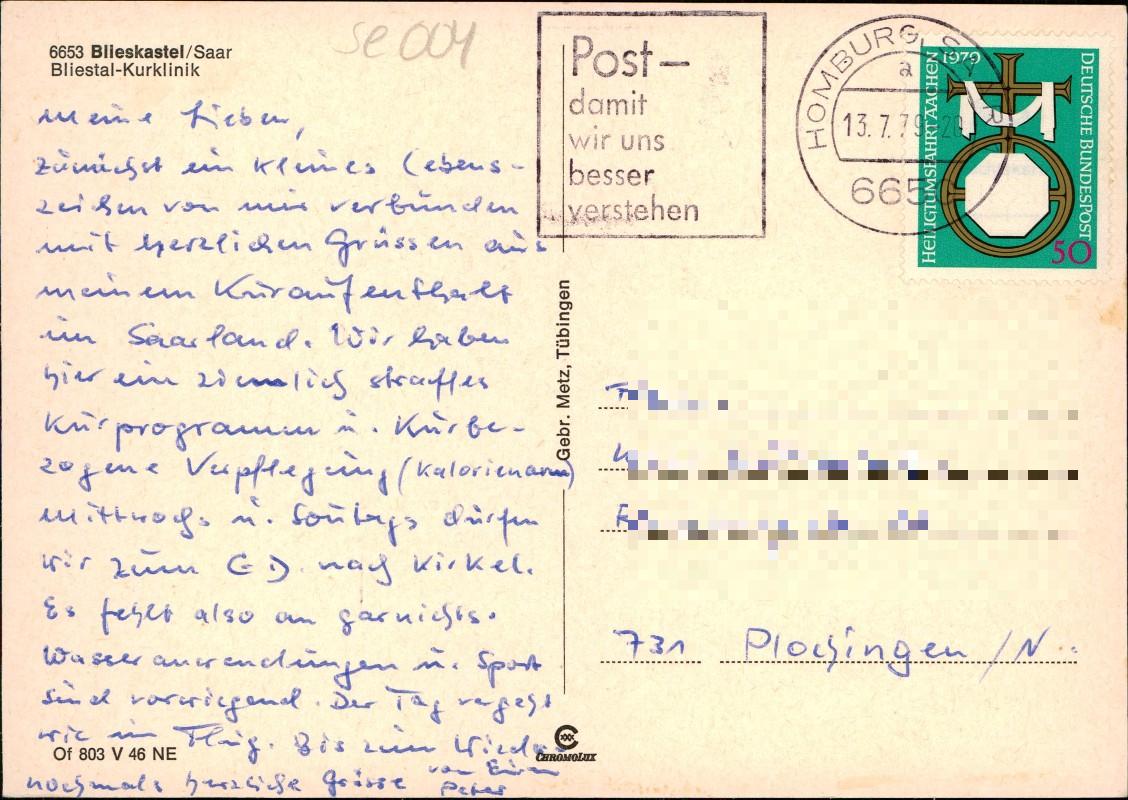 6653 Blieskastel/Saar
Bliestal-Kurklinik
se 004
Meine Lieben,
zunächst ein kleines Lebens-
zeichen von mir verbunden
mit herzlichen Grüssen aus
meinem Kuraufenthalt
im Saarland. Wir haben
hier ein ziemlich straffes
Kurprogramm u. Kurbe-
zogene Verpflegung (kalorienarm)
Mittwochs u. Sonntags dürfen
wir zum GD. nach Kirkel.
Es fehlt also an garnichts.
Wasseranwendungen u. Sport
sind vorwiegend. Der Tag vergeht
wie im Flug. Bis zum Wieder
nochmals herzliche Grüsse von Eurem
Peter
Of 803 V 46 NE
Gebr. Metz, Tübingen
CHROMOLUX
Post–
damit
wir uns
besser
verstehen
HOMBURG, SA
a
13.7.79-20
665
HEILIGTUMSFAHRT AACHEN 1979
DEUTSCHE BUNDESPOST
50
731 Plochingen /N.